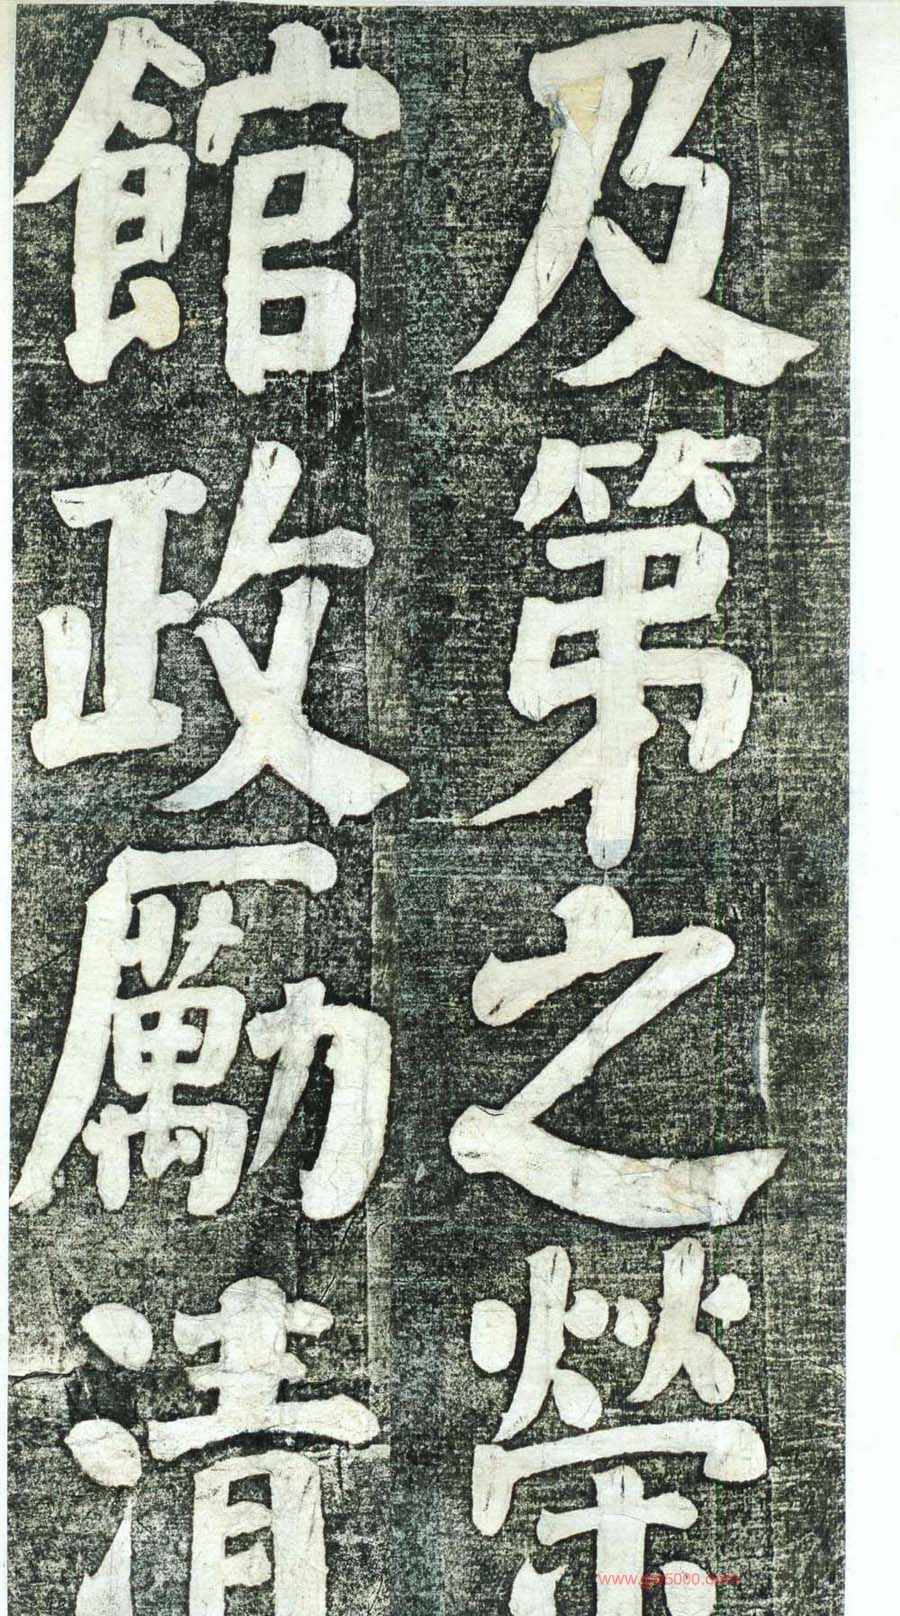 及第之榮
館政勵清
www.gm5000.com